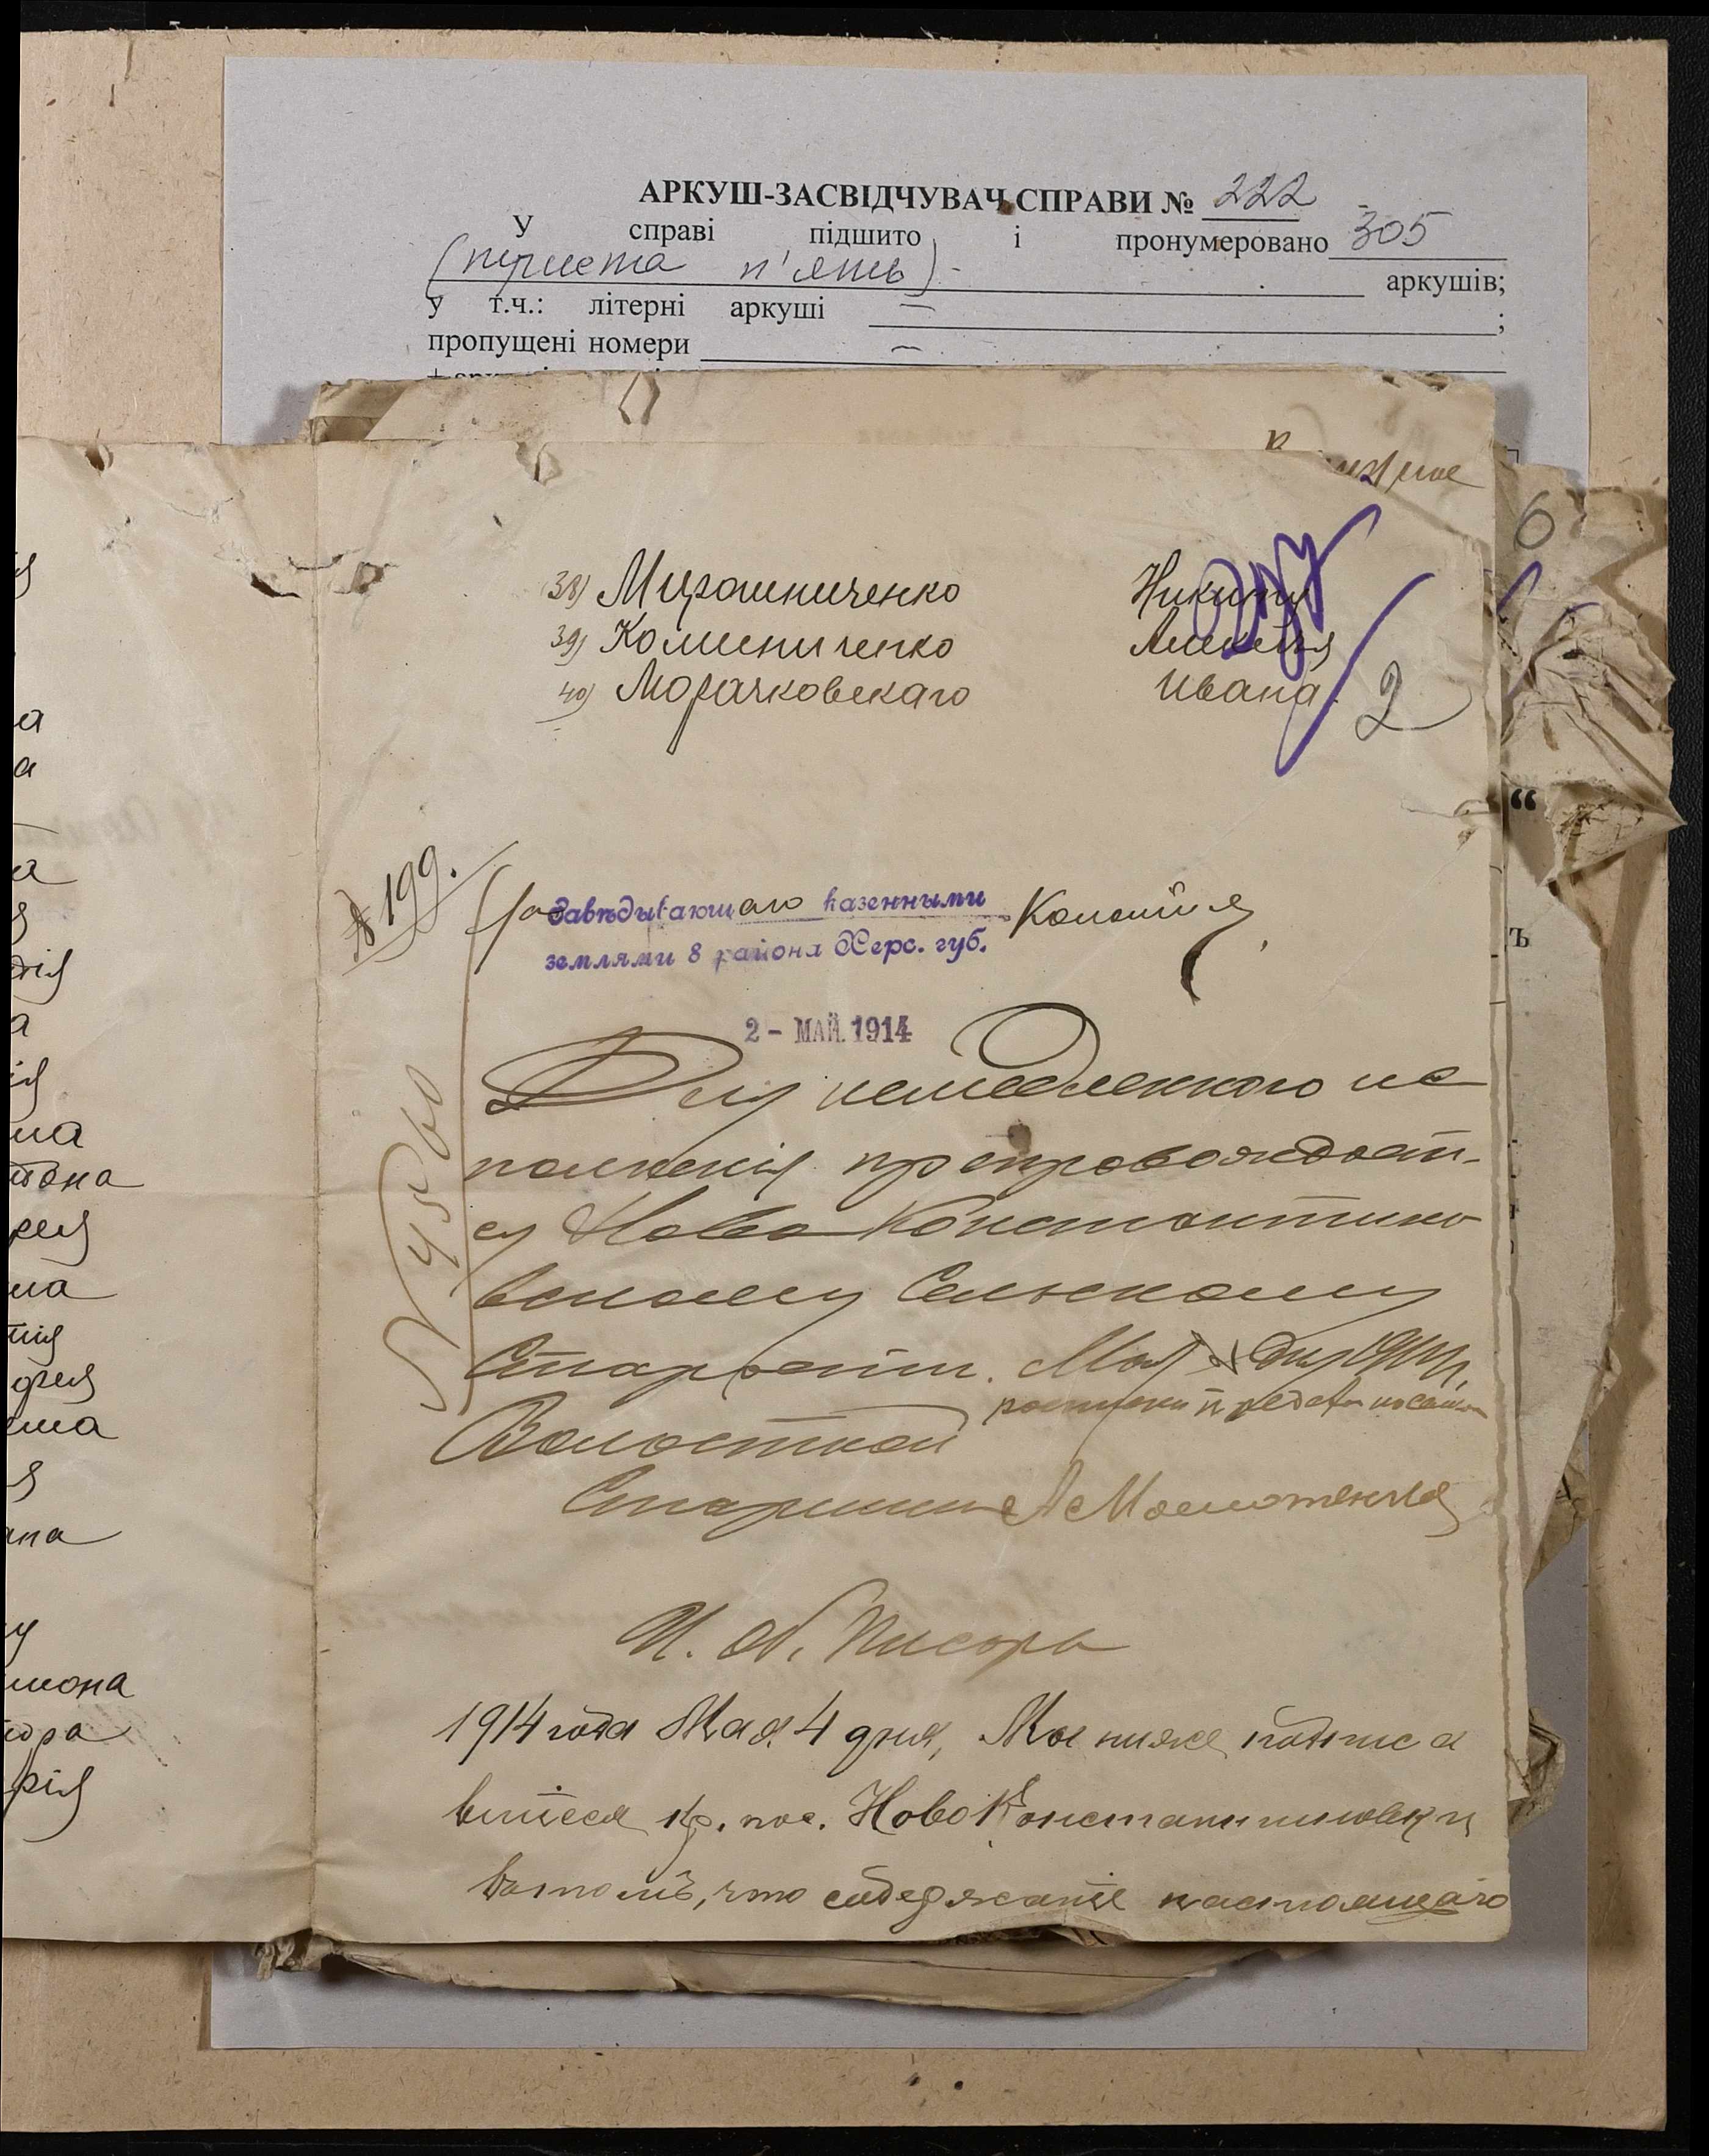 АРКУШ-ЗАСВІДЧУВАЧ СПРАВИ № 222
У справі підшито і пронумеровано 305
(триста п'ять) аркушів;
у т.ч.: літерні аркуші — ;
пропущені номери —
6
38) Мирошниченко Никиты
39) Коломиченко Алексѣя
40) Морачковскаго Ивана
2
№ 199.
Завѣдывающаго казенными
землями 8 района Херс. губ.
2 - МАЙ 1914
Для немедленнаго ис
полненія препровождает
ся Ново Константино
вскому Сельскому
Старостѣ. Мая дня 1914 г.
Волостной
Старшина
И. об. Писаря
1914 года Мая 4 дня, Мы ниже подписа
вшіеся кр. пос. НовоКонстантиновки
въ томъ, что содержаніе настоящаго
на
а
а
а
дія
а
ма
дона
рея
ма
тія
фея
ема
ана
мона
дора
рія
“
ъ